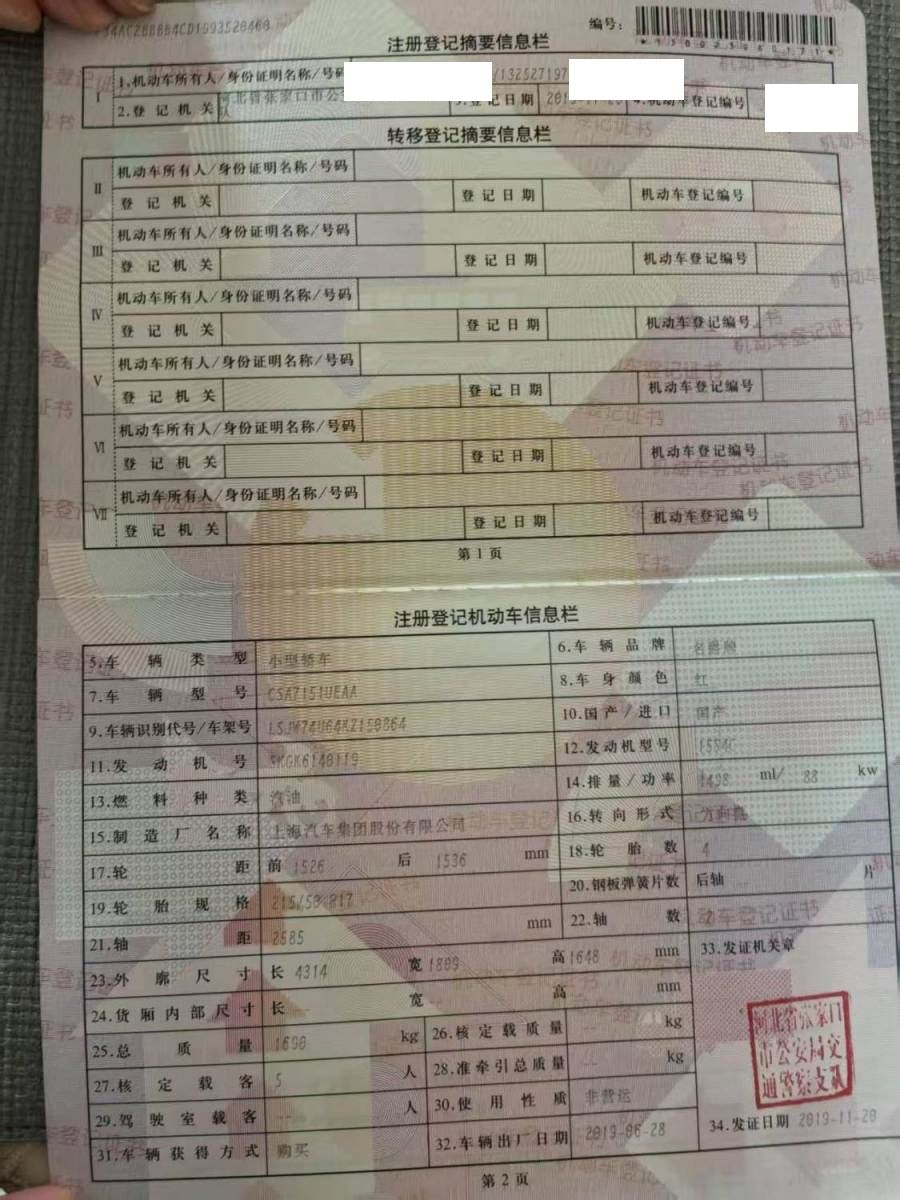 注册登记摘要信息栏
编号：
*130023960171*
I
1.机动车所有人/身份证明名称/号码
2.登记机关
河北省张家口市公
队
3.登记日期
4.机动车登记编号
转移登记摘要信息栏
II 机动车所有人/身份证明名称/号码
登记机关 登记日期 机动车登记编号
III 机动车所有人/身份证明名称/号码
登记机关 登记日期 机动车登记编号
IV 机动车所有人/身份证明名称/号码
登记机关 登记日期 机动车登记编号
V 机动车所有人/身份证明名称/号码
登记机关 登记日期 机动车登记编号
VI 机动车所有人/身份证明名称/号码
登记机关 登记日期 机动车登记编号
VII 机动车所有人/身份证明名称/号码
登记机关 登记日期 机动车登记编号
第1页
注册登记机动车信息栏
5.车辆类型 小型轿车 6.车辆品牌 名爵牌
7.车辆型号 CSA7151UEAA 8.车身颜色 红
9.车辆识别代号/车架号 10.国产/进口 国产
11.发动机号 12.发动机型号 15S4C
13.燃料种类 汽油 14.排量/功率 1498 ml/ 88 kw
15.制造厂名称 上海汽车集团股份有限公司 16.转向形式 方向盘
17.轮距 前 1526 后 1536 mm 18.轮胎数 4
19.轮胎规格 215/50R17 20.钢板弹簧片数 后轴 片
21.轴距 2585 mm 22.轴数 2
23.外廓尺寸 长 4314 宽 1809 高 1648 mm 33.发证机关章
24.货厢内部尺寸 长 宽 高 mm
25.总质量 1698 kg 26.核定载质量 -- kg
27.核定载客 5 人 28.准牵引总质量 -- kg
29.驾驶室载客 -- 人 30.使用性质 非营运
31.车辆获得方式 购买 32.车辆出厂日期 2019-06-28 34.发证日期 2019-11-20
河北省张家口
市公安局交
通警察支队
第2页